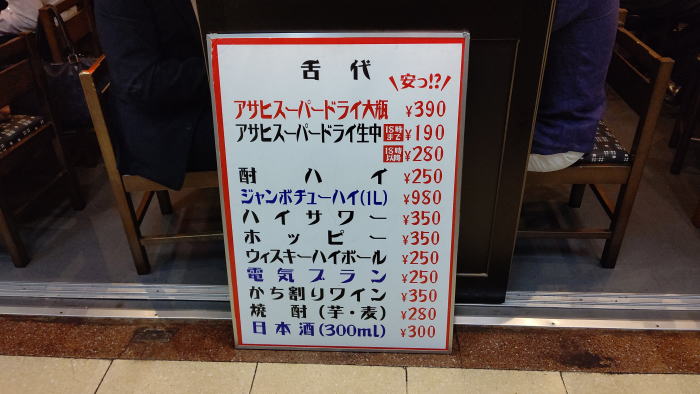 舌代
安っ!?
アサヒスーパードライ大瓶 ¥390
アサヒスーパードライ生中 18時まで ¥190
18時以降 ¥280
酎ハイ ¥250
ジャンボチューハイ(1L) ¥980
ハイサワー ¥350
ホッピー ¥350
ウィスキーハイボール ¥250
電気ブラン ¥250
かち割りワイン ¥350
焼酎(芋・麦) ¥280
日本酒(300ml) ¥300